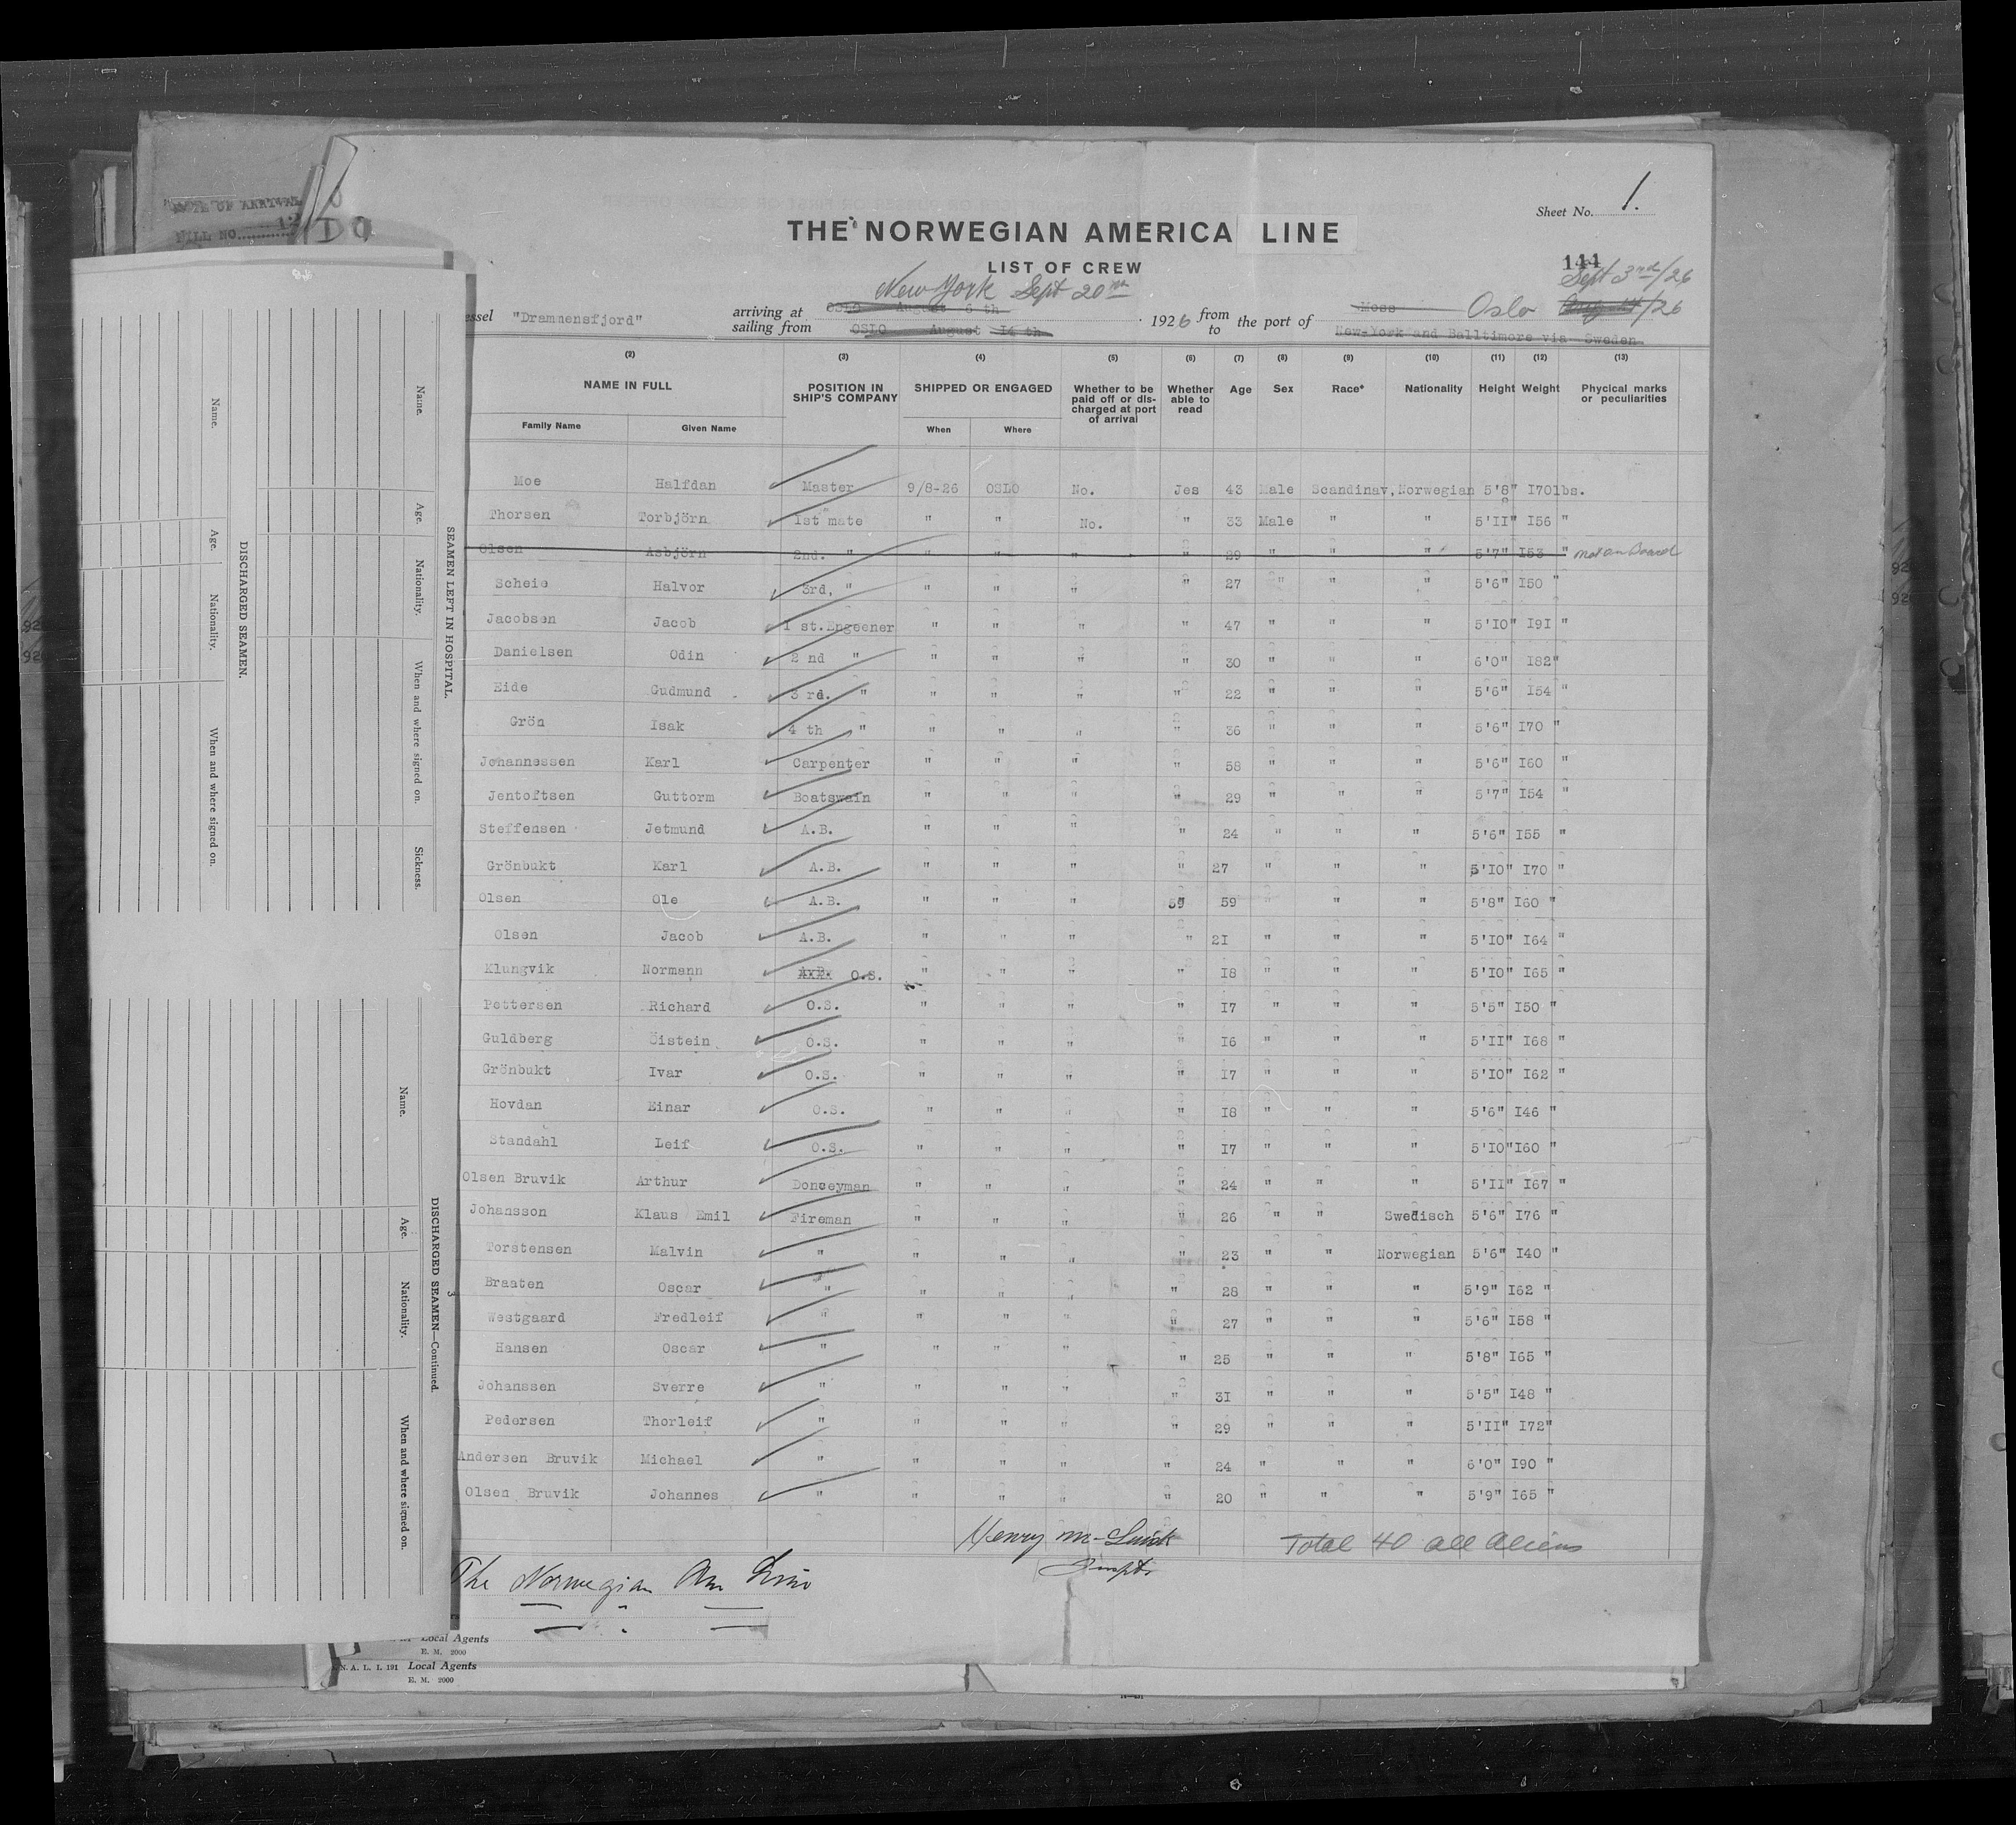 DATE OF ARRIVAL
FILL NO.
Sheet No. 1.
THE NORWEGIAN AMERICA LINE
LIST OF CREW
144
New York Sept 20th
Sept 3rd/26
essel "Drammensfjord" arriving at OSLO August 6 th 1926 from the port of Moss Oslo /26
sailing from OSLO August 14 th to New-York and Balltimore via Sweden
(2) (3) (4) (5) (6) (7) (8) (9) (10) (11) (12) (13)
NAME IN FULL POSITION IN SHIP'S COMPANY SHIPPED OR ENGAGED Whether to be paid off or discharged at port of arrival Whether able to read Age Sex Race* Nationality Height Weight Phycical marks or peculiarities
Family Name Given Name When Where
Moe Halfdan Master 9/8-26 OSLO No. Jes 43 Male Scandinav, Norwegian 5'8" I70lbs.
Thorsen Torbjörn 1st mate " " No. " 33 Male " " 5'II" I56 "
Olsen Asbjörn 2nd. " " " " " 29 " " " 5'7" I53 " not on Board
Scheie Halvor 3rd, " " " " " 27 " " " 5'6" I50 "
Jacobsen Jacob 1 st.Engeener " " " " 47 " " " 5'IO" I9I "
Danielsen Odin 2 nd " " " " " 30 " " " 6'0" I82"
Eide Gudmund 3 rd. " " " " " 22 " " " 5'6" I54 "
Grön Isak 4 th " " " " " 36 " " " 5'6" I70 "
Johannessen Karl Carpenter " " " " 58 " " " 5'6" I60 "
Jentoftsen Guttorm Boatswain " " " " 29 " " " 5'7" I54 "
Steffensen Jetmund A.B. " " " " 24 " " " 5'6" I55 "
Grönbukt Karl A.B. " " " " 27 " " " 5'IO" I70 "
Olsen Ole A.B. " " " 59 59 " " " 5'8" I60 "
Olsen Jacob A.B. " " " " 2I " " " 5'IO" I64 "
Klungvik Normann A.B. O.S. " " " " I8 " " " 5'IO" I65 "
Pettersen Richard O.S. " " " " I7 " " " 5'5" I50 "
Guldberg Öistein O.S. " " " " I6 " " " 5'II" I68 "
Grönbukt Ivar O.S. " " " " I7 " " " 5'IO" I62 "
Hovdan Einar O.S. " " " " I8 " " " 5'6" I46 "
Standahl Leif O.S. " " " " I7 " " " 5'IO" I60 "
Olsen Bruvik Arthur Donceyman " " " " 24 " " " 5'II" I67 "
Johansson Klaus Emil Fireman " " " " 26 " " Swedisch 5'6" I76 "
Torstensen Malvin " " " " " 23 " " Norwegian 5'6" I40 "
Braaten Oscar " " " " " 28 " " " 5'9" I62 "
Westgaard Fredleif " " " " " 27 " " " 5'6" I58 "
Hansen Oscar " " " " " 25 " " " 5'8" I65 "
Johanssen Sverre " " " " " 3I " " " 5'5" I48 "
Pedersen Thorleif " " " " " 29 " " " 5'II" I72"
Andersen Bruvik Michael " " " " " 24 " " " 6'0" I90 "
Olsen Bruvik Johannes " " " " " 20 " " " 5'9" I65 "
Henry Total 40 all Aliens
Inspt.
The Norwegian Am Line
Local Agents
E. M. 2000
N. A. L. I. 191 Local Agents
E. M. 2000
SEAMEN LEFT IN HOSPITAL.
Name. Age. Nationality. When and where signed on. Sickness.
DISCHARGED SEAMEN.
Name. Age. Nationality. When and where signed on.
3
DISCHARGED SEAMEN—Continued.
Name. Age. Nationality. When and where signed on.